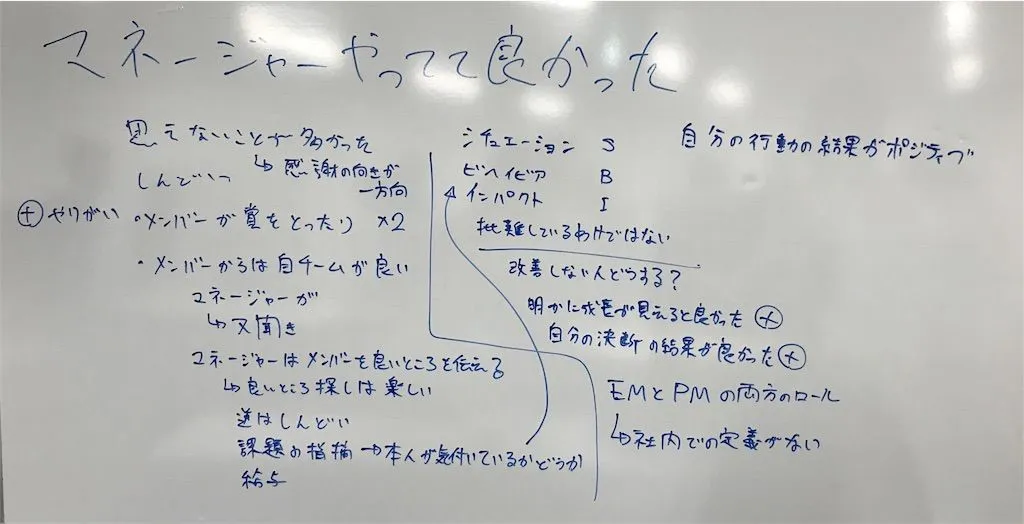 マネージャーやってて良かった
思えないことが多かった
↳ 感謝の向きが
一方向
しんどいっ
⊕ やりがい ・メンバーが賞をとったり ×2
・メンバーからは自チームが良い
マネージャーが
↳ 又聞き
マネージャーはメンバーを良いところを伝える
↳ 良いところ探しは楽しい
逆はしんどい
課題の指摘 → 本人が気付いているかどうか
給与
シチュエーション S
ビヘイビア B
インパクト I
批難しているわけではない
改善しない人どうする?
明かに成長が見えると良かった ⊕
自分の決断の結果が良かった ⊕
EMとPMの両方のロール
↳ 社内での定義がない
自分の行動の結果がポジティブ